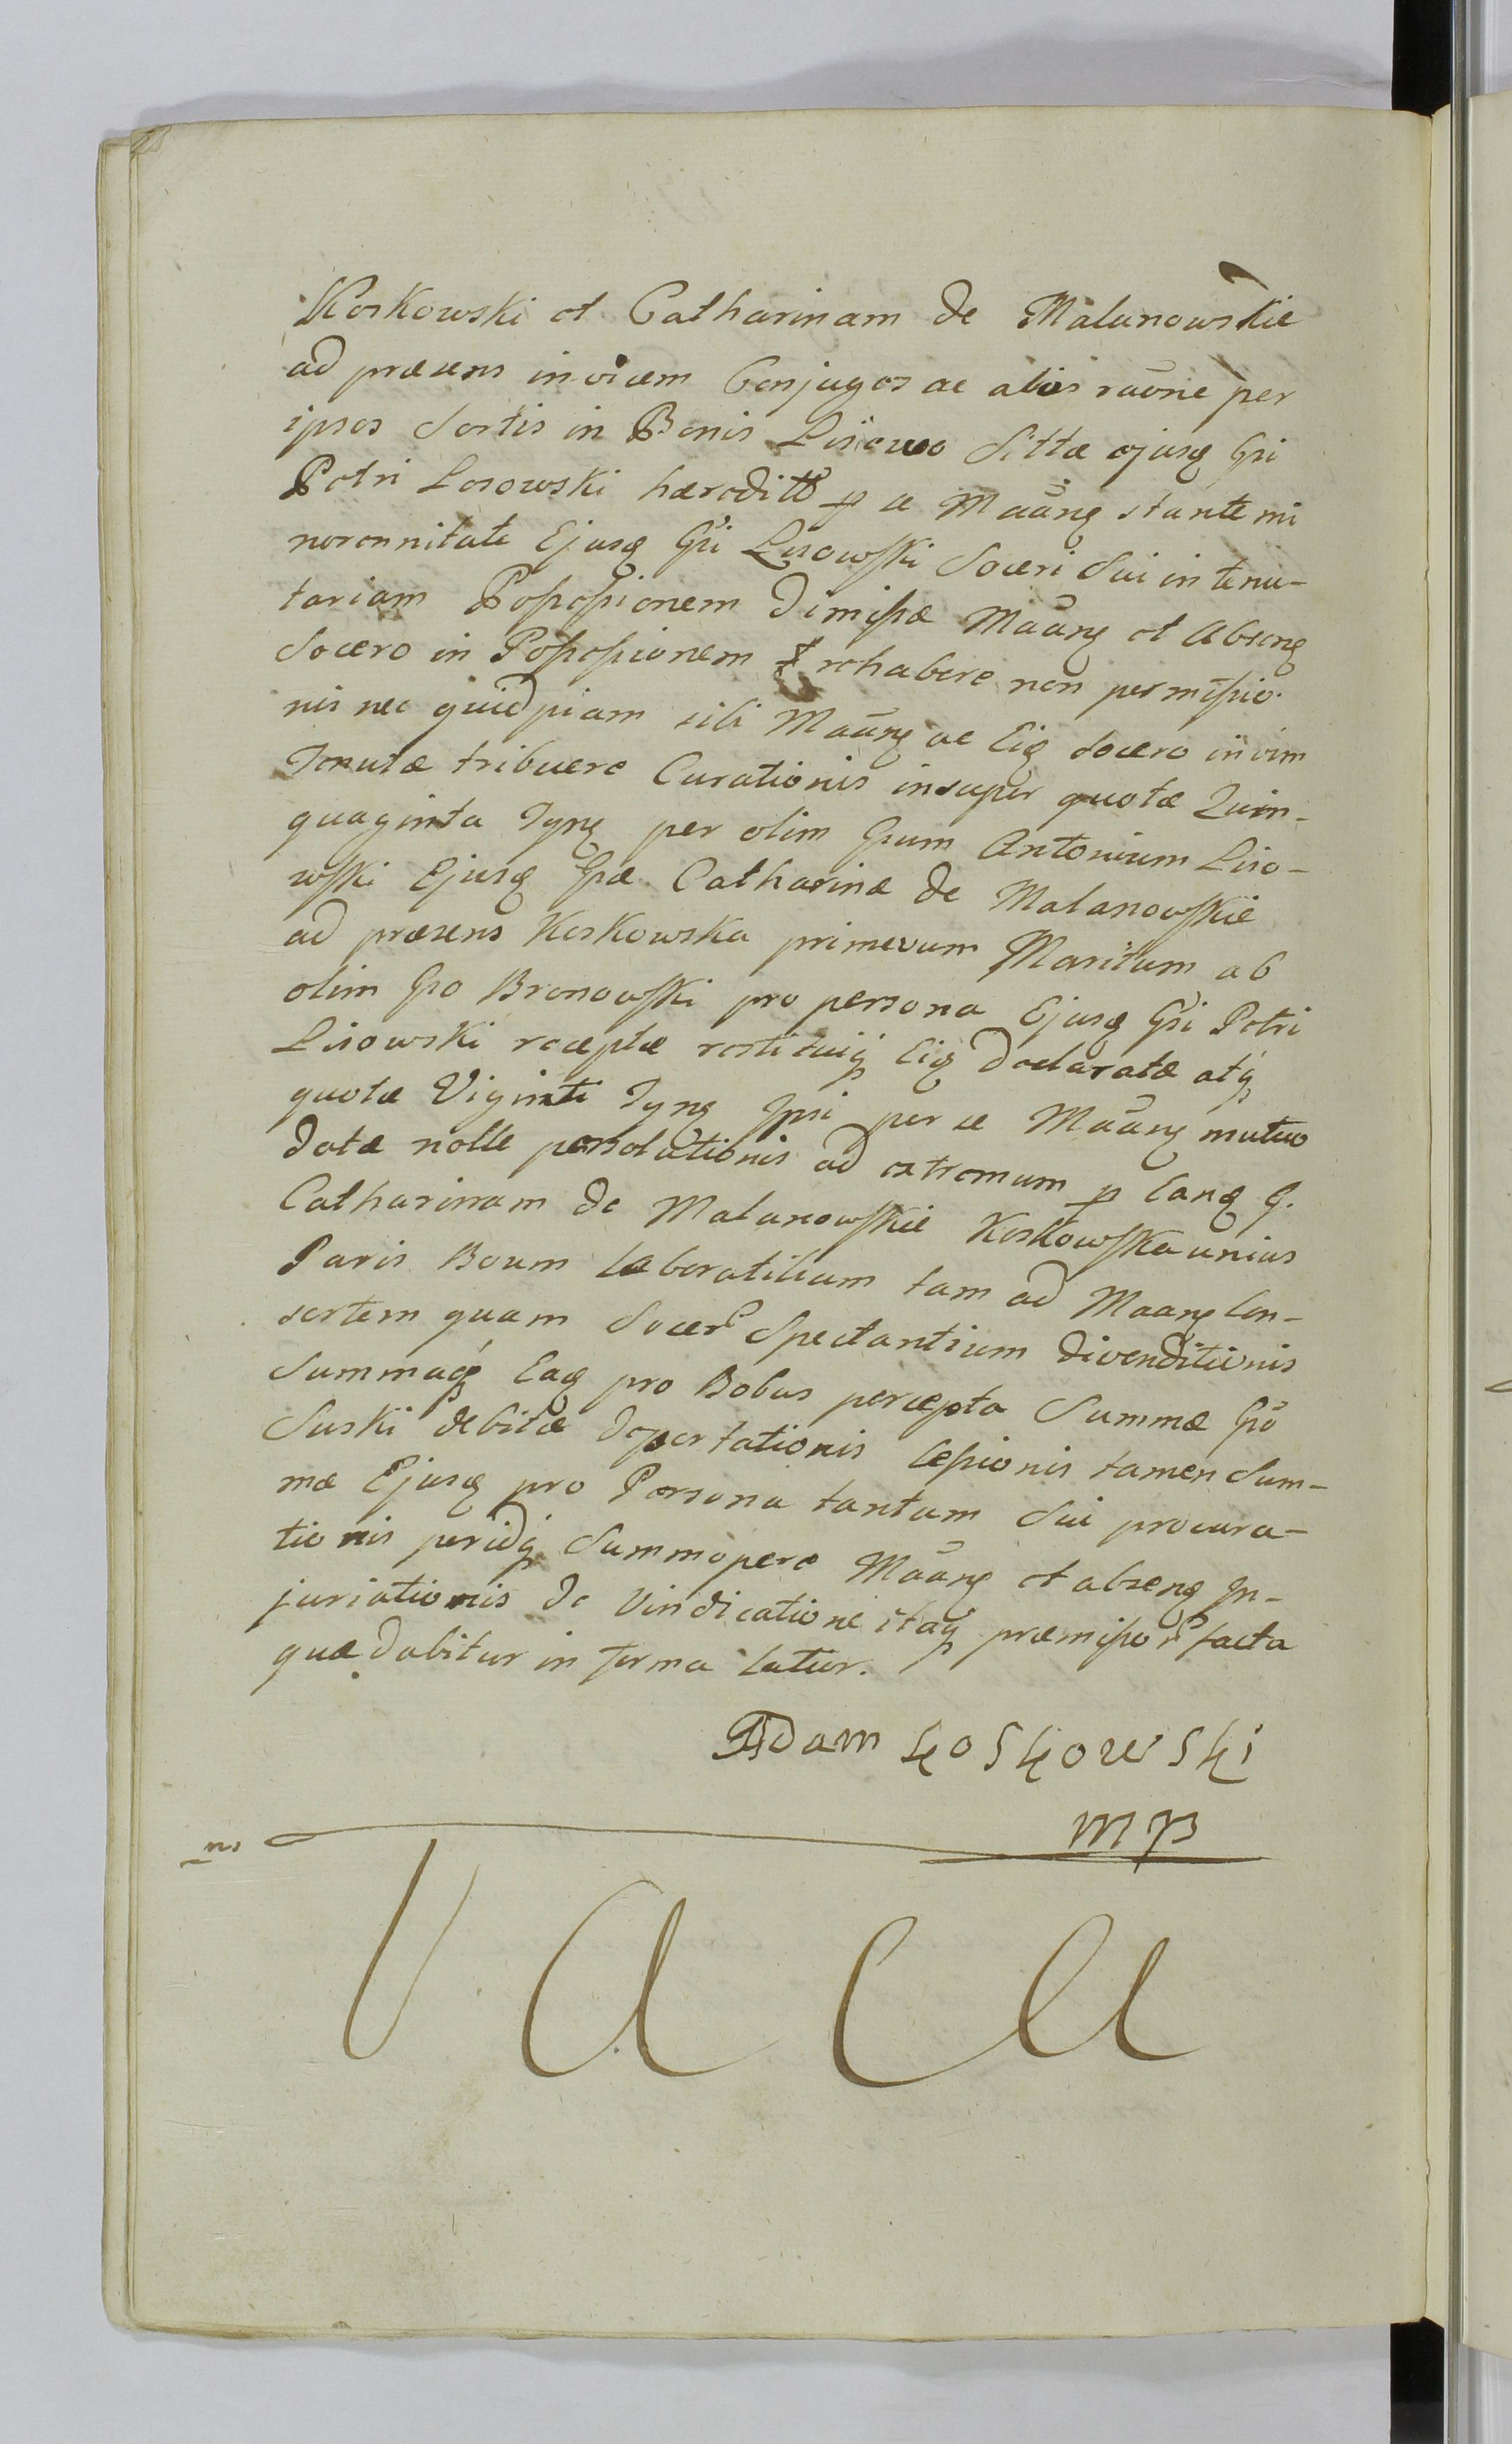 Koskowski et Catharinam de Malanowskie
ad præsens invicem Conjuges ac alios rãone per
ipsos Sortis in Bonis Lisowo Sittæ ejusq Gsi
Petri Losowski hæreditt p se Maãnq stante mi
norennitate Ejusq Gsi Lisowski Soceri Sui in tenu-
tariam Possessionem dimissæ Maãnq et Absenq
Socero in Possessionem rehabere non permissio-
nis nec quidpiam sibi Maãnq ac Eiq Socero in vim
Tenutæ tribuere Curationis insuper quotæ Quin-
quaginta Tynq per olim Gsum Antonium Liso-
wski Ejusq Gsæ Catharinæ de Malanowskie
ad præsens Koskowska primevum Maritum ab
olim Gso Bronowski pro persona Ejusq Gsi Petri
Lisowski receptæ restituiq Eiq declaratæ atq
quotæ Viginti Tynq Ipsi per se Maãnq mutuo
datæ nolle persolutionis ad extremum p Eanq G.
Catharinam de Malanowskie Koskowska unius
Paris Boum laboratilium tam ad Maanq Con-
sortem quam Socer Spectantium divenditionis
Summaq Eaq pro Bobus percepta Summæ Gso
Suski debitæ deportationis Cessionis tamen Sum-
mæ Ejusq pro Persona tantum Sui procura-
tionis peridq Summopere Maãnq et absenq In-
juriationis de Vindicatione itaq præmissor facta
quæ dabitur in Terma latior.
Adam Koskowski
mp
ns
Vaca